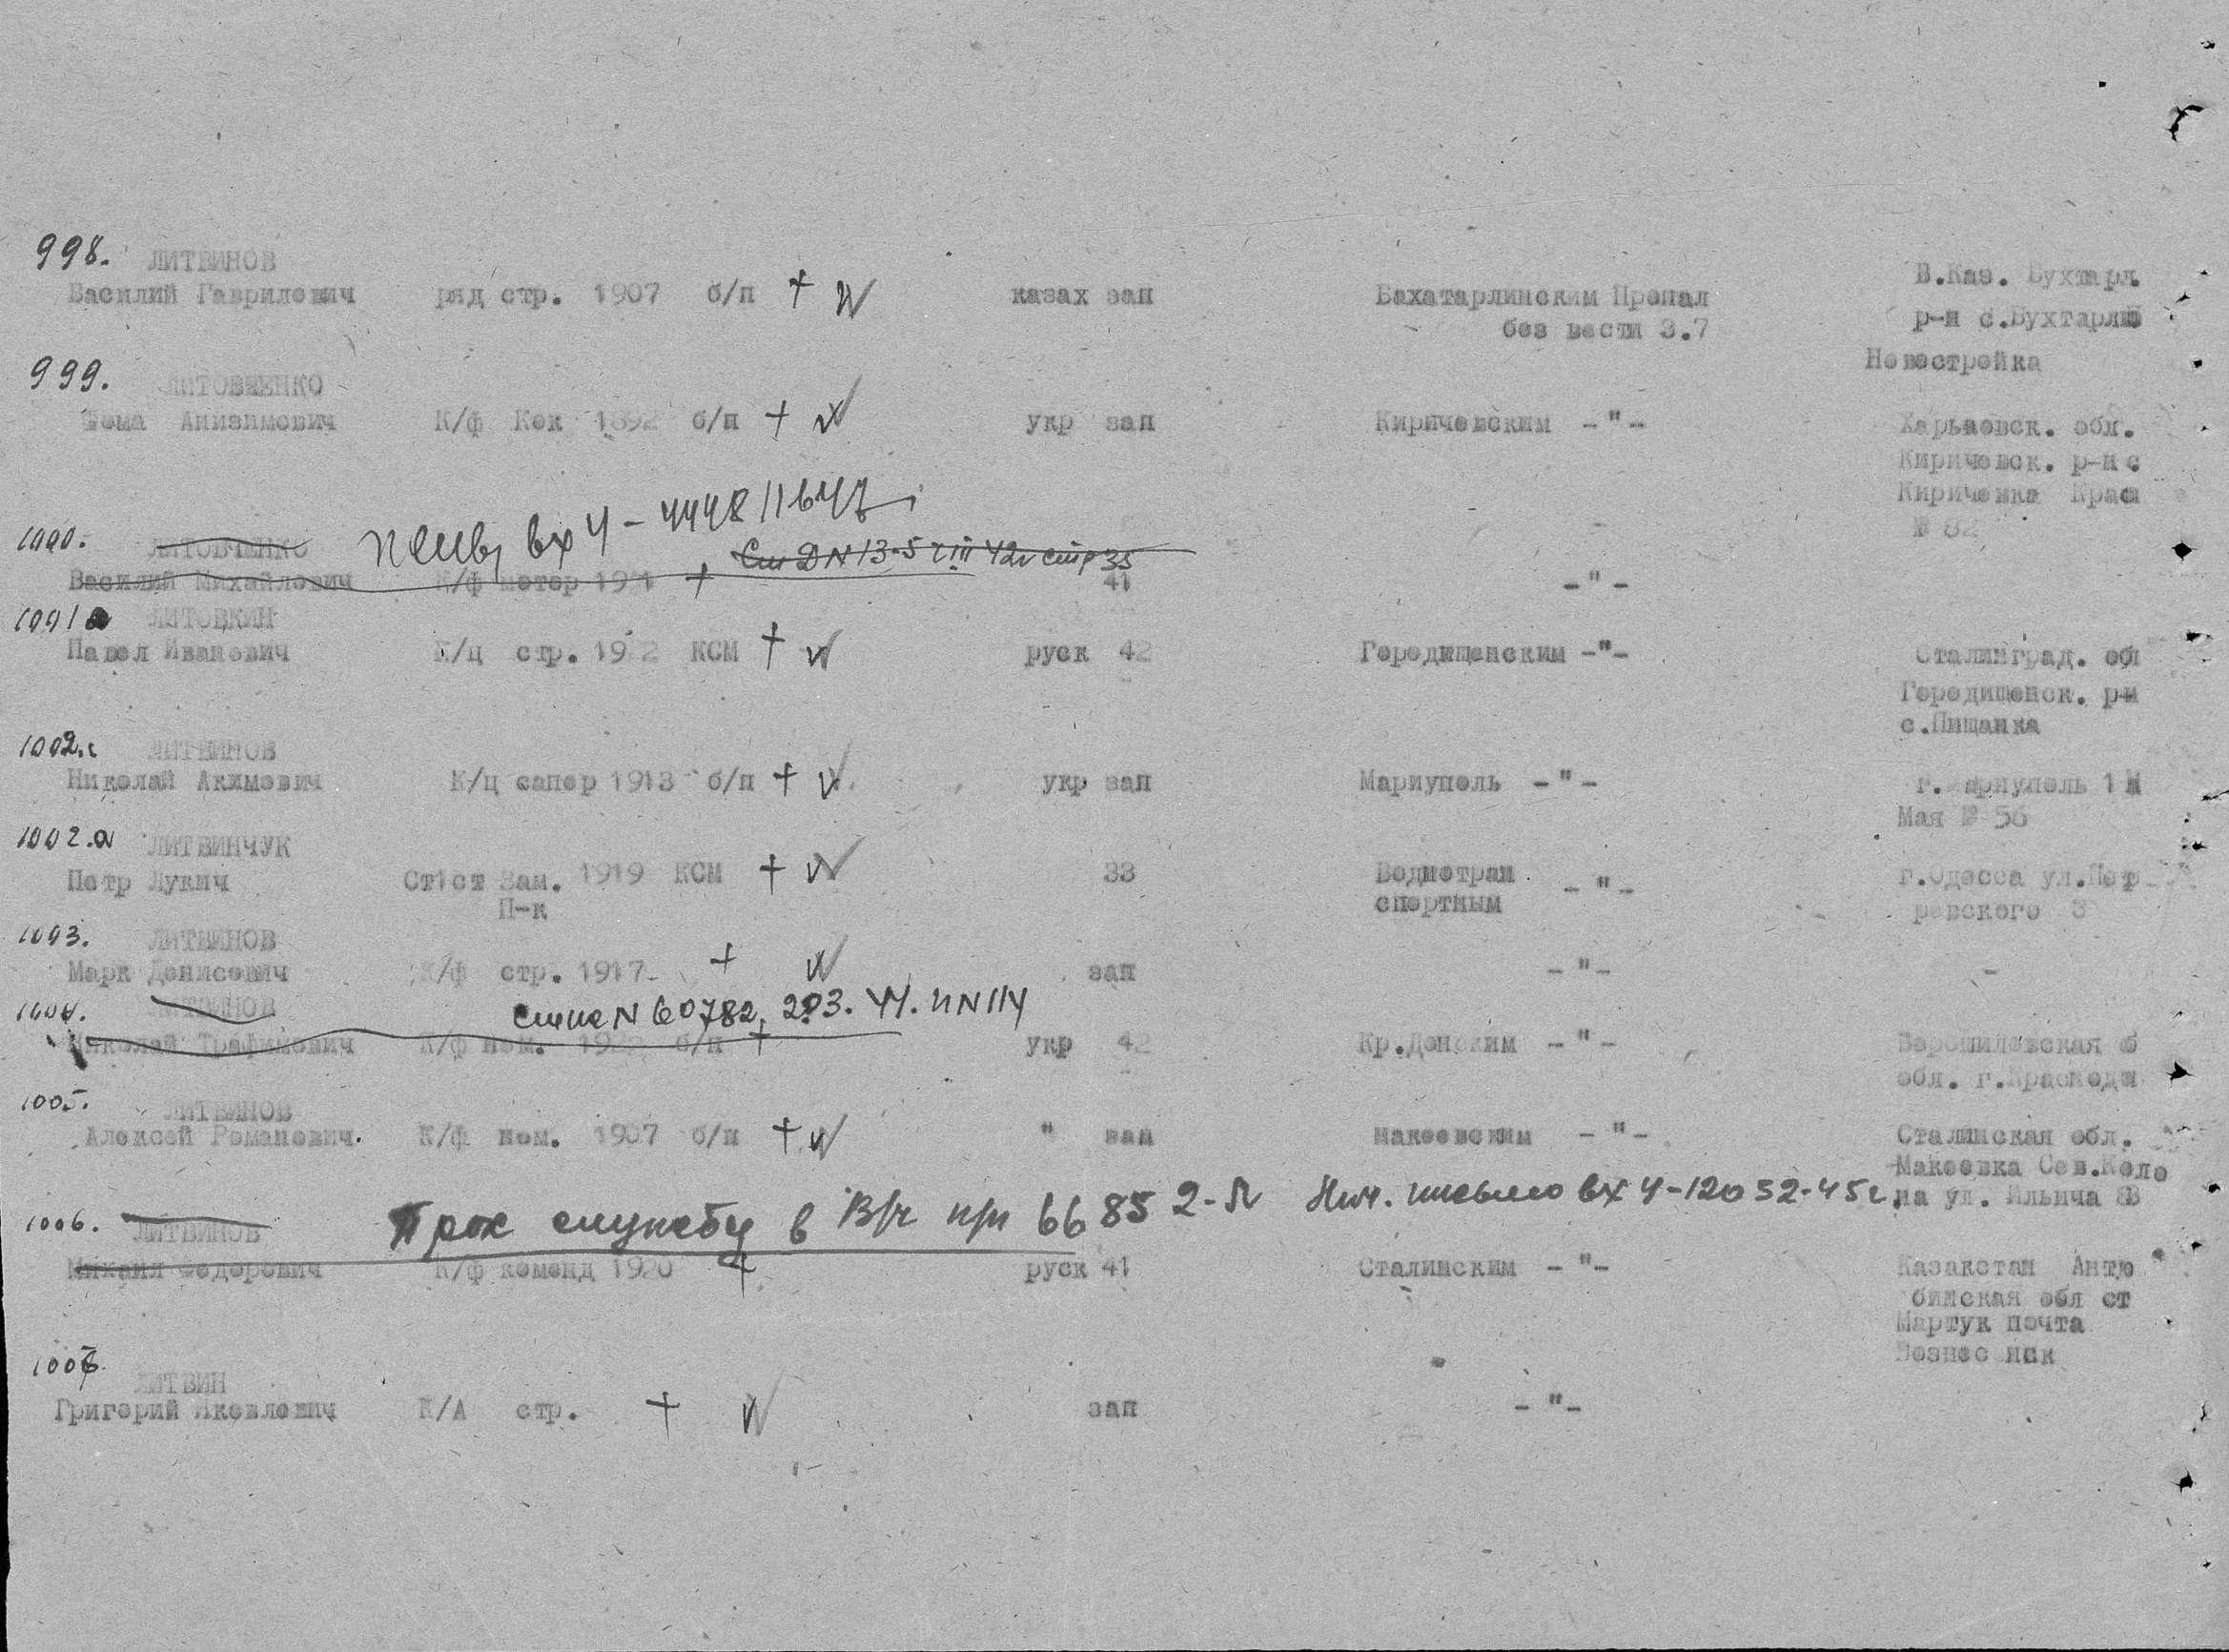 998. ЛИТВИНОВ
Василий Гаврилович ряд стр. 1907 б/п + казах зап Бахатарлинским Пропал без вести 3.7
В.Каз. Бухтарл.
р-н с.Бухтарлин
Новостройка
999. ЛИТОВЧЕНКО
Фома Анизимович К/ф Кок 1892 б/п + укр зап Киричевским -"-
Харьковск. обл.
Киричевск. р-н с
Киричевка Крас
№ 82
1000. ЛИТОВЧЕНКО вх 4-
См 13-5 42г стр 35
Василий Михайлович К/ф мотор 1921 + 41 -"-
1001 ЛИТОВКИН
Павел Иванович К/ц стр. 1922 КСМ + руск 42 Городищенским -"-
Сталинград. об
Городищенск. р-н
с.Пищанка
1002. ЛИТВИНОВ
Николай Акимович К/ц сапер 1913 б/п + укр зап Мариуполь -"- г.Мариуполь 1 М
Мая № 56
1002.а ЛИТВИНЧУК
Петр Лукич Ст1ст Зам. П-к 1919 КСМ + 33 Воднотран спортным -"-
г.Одесса ул.Пет
ровского 3
1003. ЛИТВИНОВ
Марк Денисович К/ф стр. 1917 + зап -"- -
1004. ЛИТВИНОВ N 60782. 203. 44. N114
Николай Трафимович К/ф пом. б/п + укр 42 Кр.Донским -"- Ворошиловская
обл. г.Краснодн
1005. ЛИТВИНОВ
Алексей Романович. К/ф пом. 1907 б/п + " зап Макеевским -"- Сталинская обл.
Макеевка Сов.Коло
на ул. Ильича
1006. ЛИТВИНОВ Прох службу в В/ч п/п 66852-Л письмо вх 4-12052-45г.
Михаил Федорович К/ф команд 1920 + руск 41 Сталинским -"- Казакстан Актю
бинская обл ст
Мартук почта
Вознес нск
1006. ЛИТВИН
Григорий Яковлевич К/А стр. + зап -"-